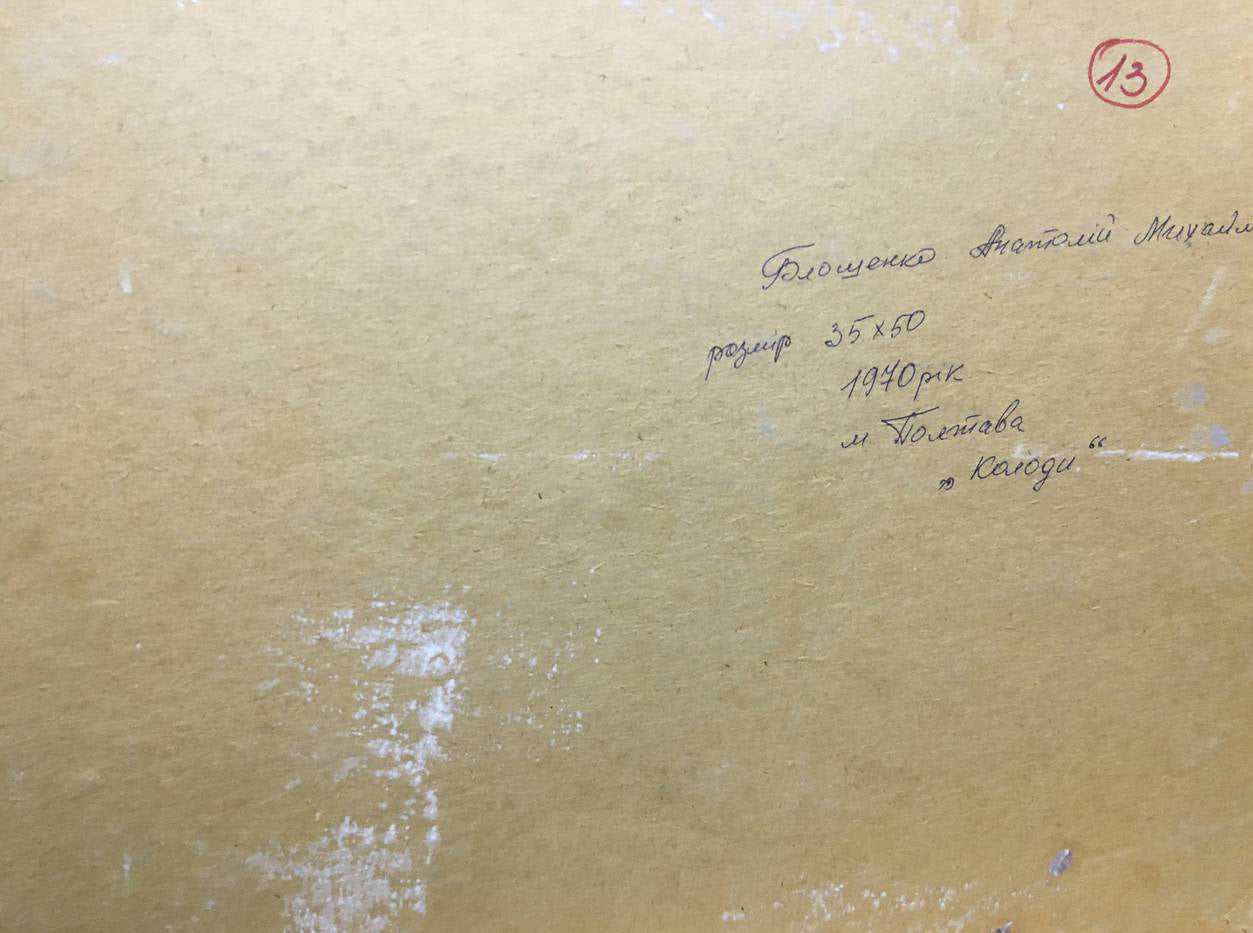 13
Блощенко Анатолій Михайл
розмір 35х50
1970 рік
м Полтава
„Колоди“